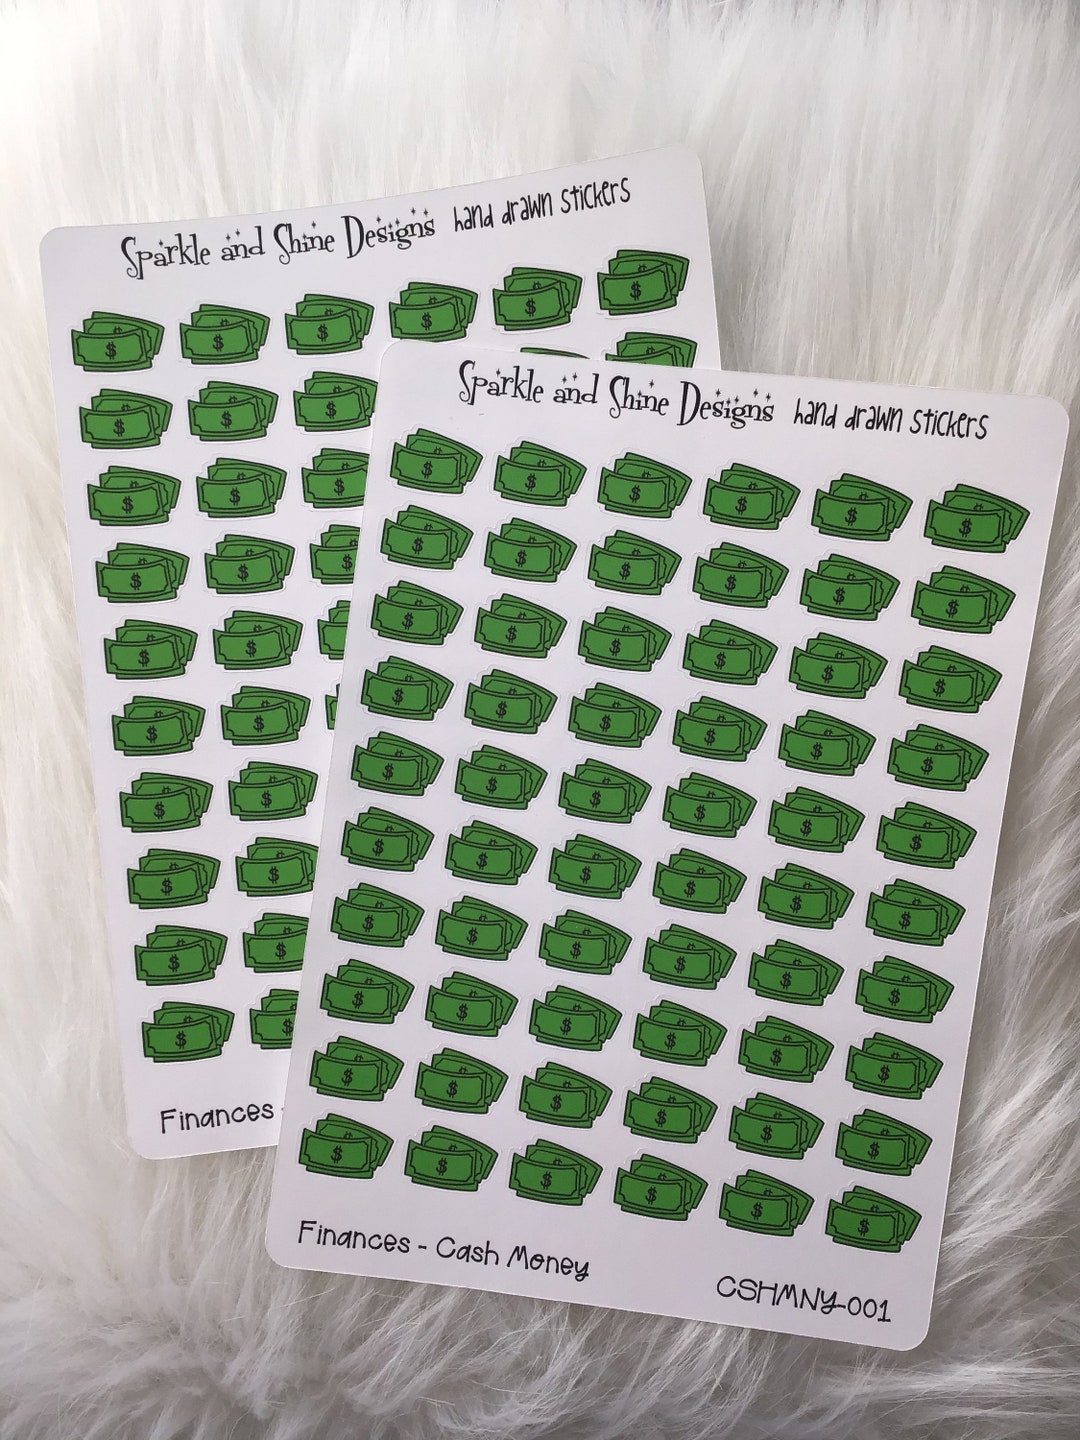 Sparkle and Shine Designs hand drawn stickers
Sparkle and Shine Designs hand drawn stickers
Finances -
Finances - Cash Money
CSHMNY-001